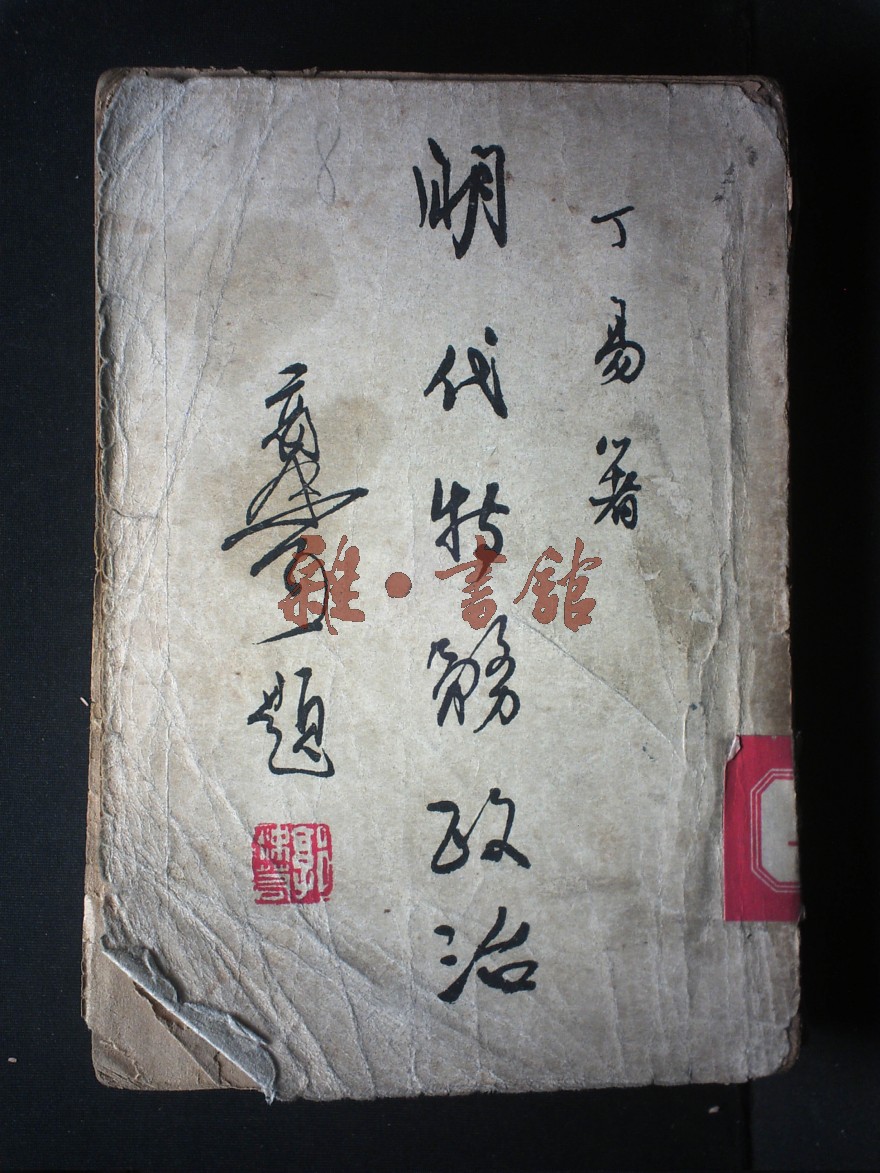 丁易著
明代特務政治
郭沫若題
郭沫若
雜·書館
8